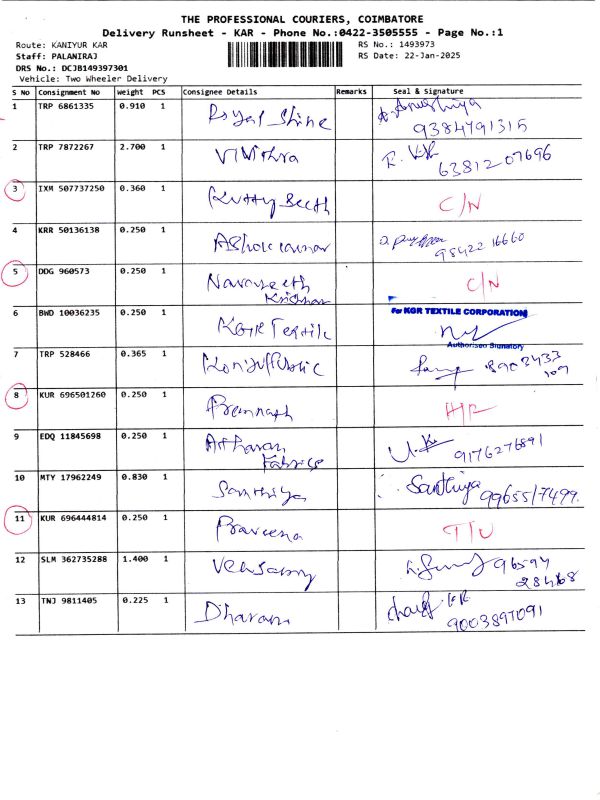 THE PROFESSIONAL COURIERS, COIMBATORE
Delivery Runsheet - KAR - Phone No.:0422-3505555 - Page No.:1
Route: KANIYUR KAR RS No.: 1493973
Staff: PALANIRAJ RS Date: 22-Jan-2025
DRS No.: DCJB149397301
Vehicle: Two Wheeler Delivery
S No Consignment No Weight PCS Consignee Details Remarks Seal & Signature
1 TRP 6861335 0.910 1 Royal Shine
9384791315
2 TRP 7872267 2.700 1 Vivithra
63812 07696
3 IXM 507737250 0.360 1 Kutty Seeth C/N
4 KRR 50136138 0.250 1 Ashok cannar
98422 16660
5 DDG 960573 0.250 1 Navaneeth C/N
Krishnan
6 BWD 10036235 0.250 1 KGR Textile For KGR TEXTILE CORPORATION
Authorised Signatory
7 TRP 528466 0.365 1
8 KUR 696501260 0.250 1 Premnath
9 EDQ 11845698 0.250 1 Atharvan 9176276891
Fabrics
10 MTY 17962249 0.830 1 Santhiya Santhiya 99655 17499
11 KUR 696444814 0.250 1 Praveena
12 SLM 362735288 1.400 1 96594
28468
13 TNJ 9811405 0.225 1 Dharani
9003897091